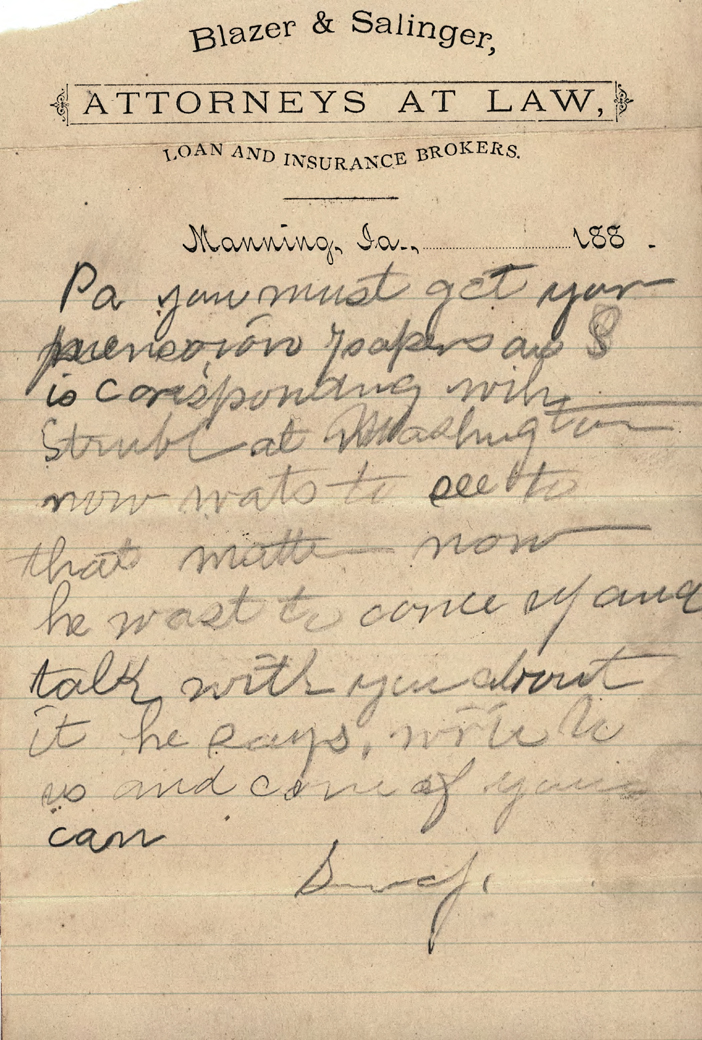 Blazer & Salinger,
ATTORNEYS AT LAW,
LOAN AND INSURANCE BROKERS.
Manning, Ia., 188 .
Pa you must get your
papers as S
is corisponding with
Strubl at Washington
now wats to see to
that matter now
he wast to come up and
talk with you about
it he says, write to
us and come if you
can